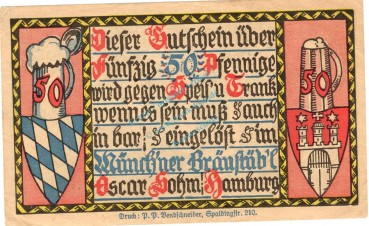 Dieser Gutschein über
Fünfzig 50 Pfennige
wird gegen Speis' u Trank
wenn es sein muß! auch
in bar! eingelöst im
Münchner Bräustüb'l
Oscar Sohm, Hamburg
50
50
Druck: P. P. Bendschneider, Spaldingstr. 210.